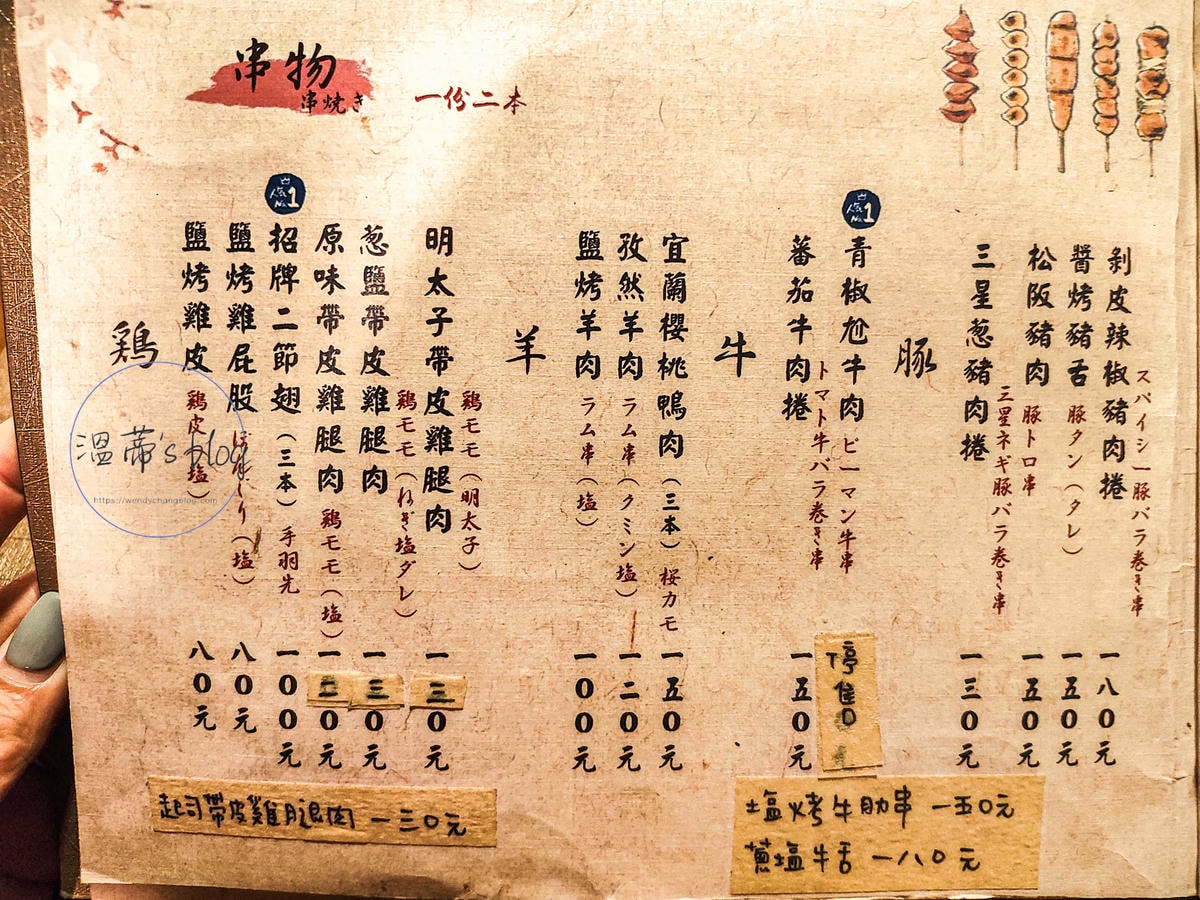 串物
串焼き
一份二本
人気No.1
人気No.1
鶏
鹽烤雞皮 鶏皮（塩） 八0元
鹽烤雞屁股 （塩） 八0元
招牌二節翅（三本）手羽先 一00元
原味帶皮雞腿肉 鶏モモ（塩） 一二0元
葱鹽帶皮雞腿肉 鶏モモ（ねぎ塩ダレ） 一三0元
明太子帶皮雞腿肉 鶏モモ（明太子） 一三0元
羊
鹽烤羊肉 ラム串（塩） 一00元
孜然羊肉 ラム串（クミン塩） 一二0元
宜蘭櫻桃鴨肉（三本）桜カモ 一五0元
牛
蕃茄牛肉捲 トマト牛バラ巻き串 一五0元
青椒尬牛肉 ピーマン牛串 停售
豚
三星葱豬肉捲 三星ネギ豚バラ巻き串 一三0元
松阪豬肉 豚トロ串 一五0元
醬烤豬舌 豚タン（タレ） 一五0元
剝皮辣椒豬肉捲 スパイシー豚バラ巻き串 一八0元
起司帶皮雞腿肉 一三0元
塩烤牛肋串 一五0元
蔥塩牛舌 一八0元
溫蒂's blog
https://wendychangblog.com